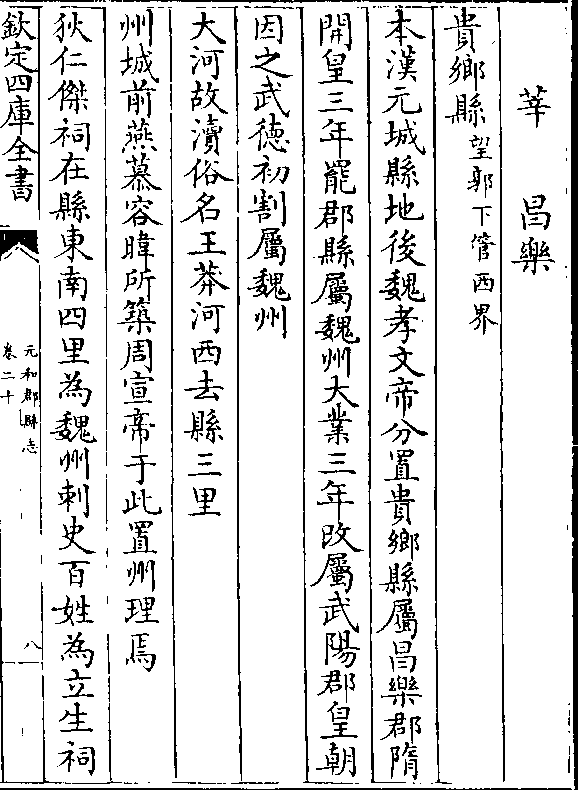 莘　昌樂
貴鄉縣望郭下管西界
本漢元城縣地後魏孝文帝分置貴鄉縣屬昌樂郡隋
開皇三年罷郡縣屬魏州大業三年改屬武陽郡皇朝
因之武德初割屬魏州
大河故瀆俗名王莽河西去縣三里
州城前燕慕容暐所築周宣帝于此置州理焉
狄仁傑祠在縣東南四里為魏州刺史百姓為立生祠
欽定四庫全書
元和郡縣志
卷二十
八